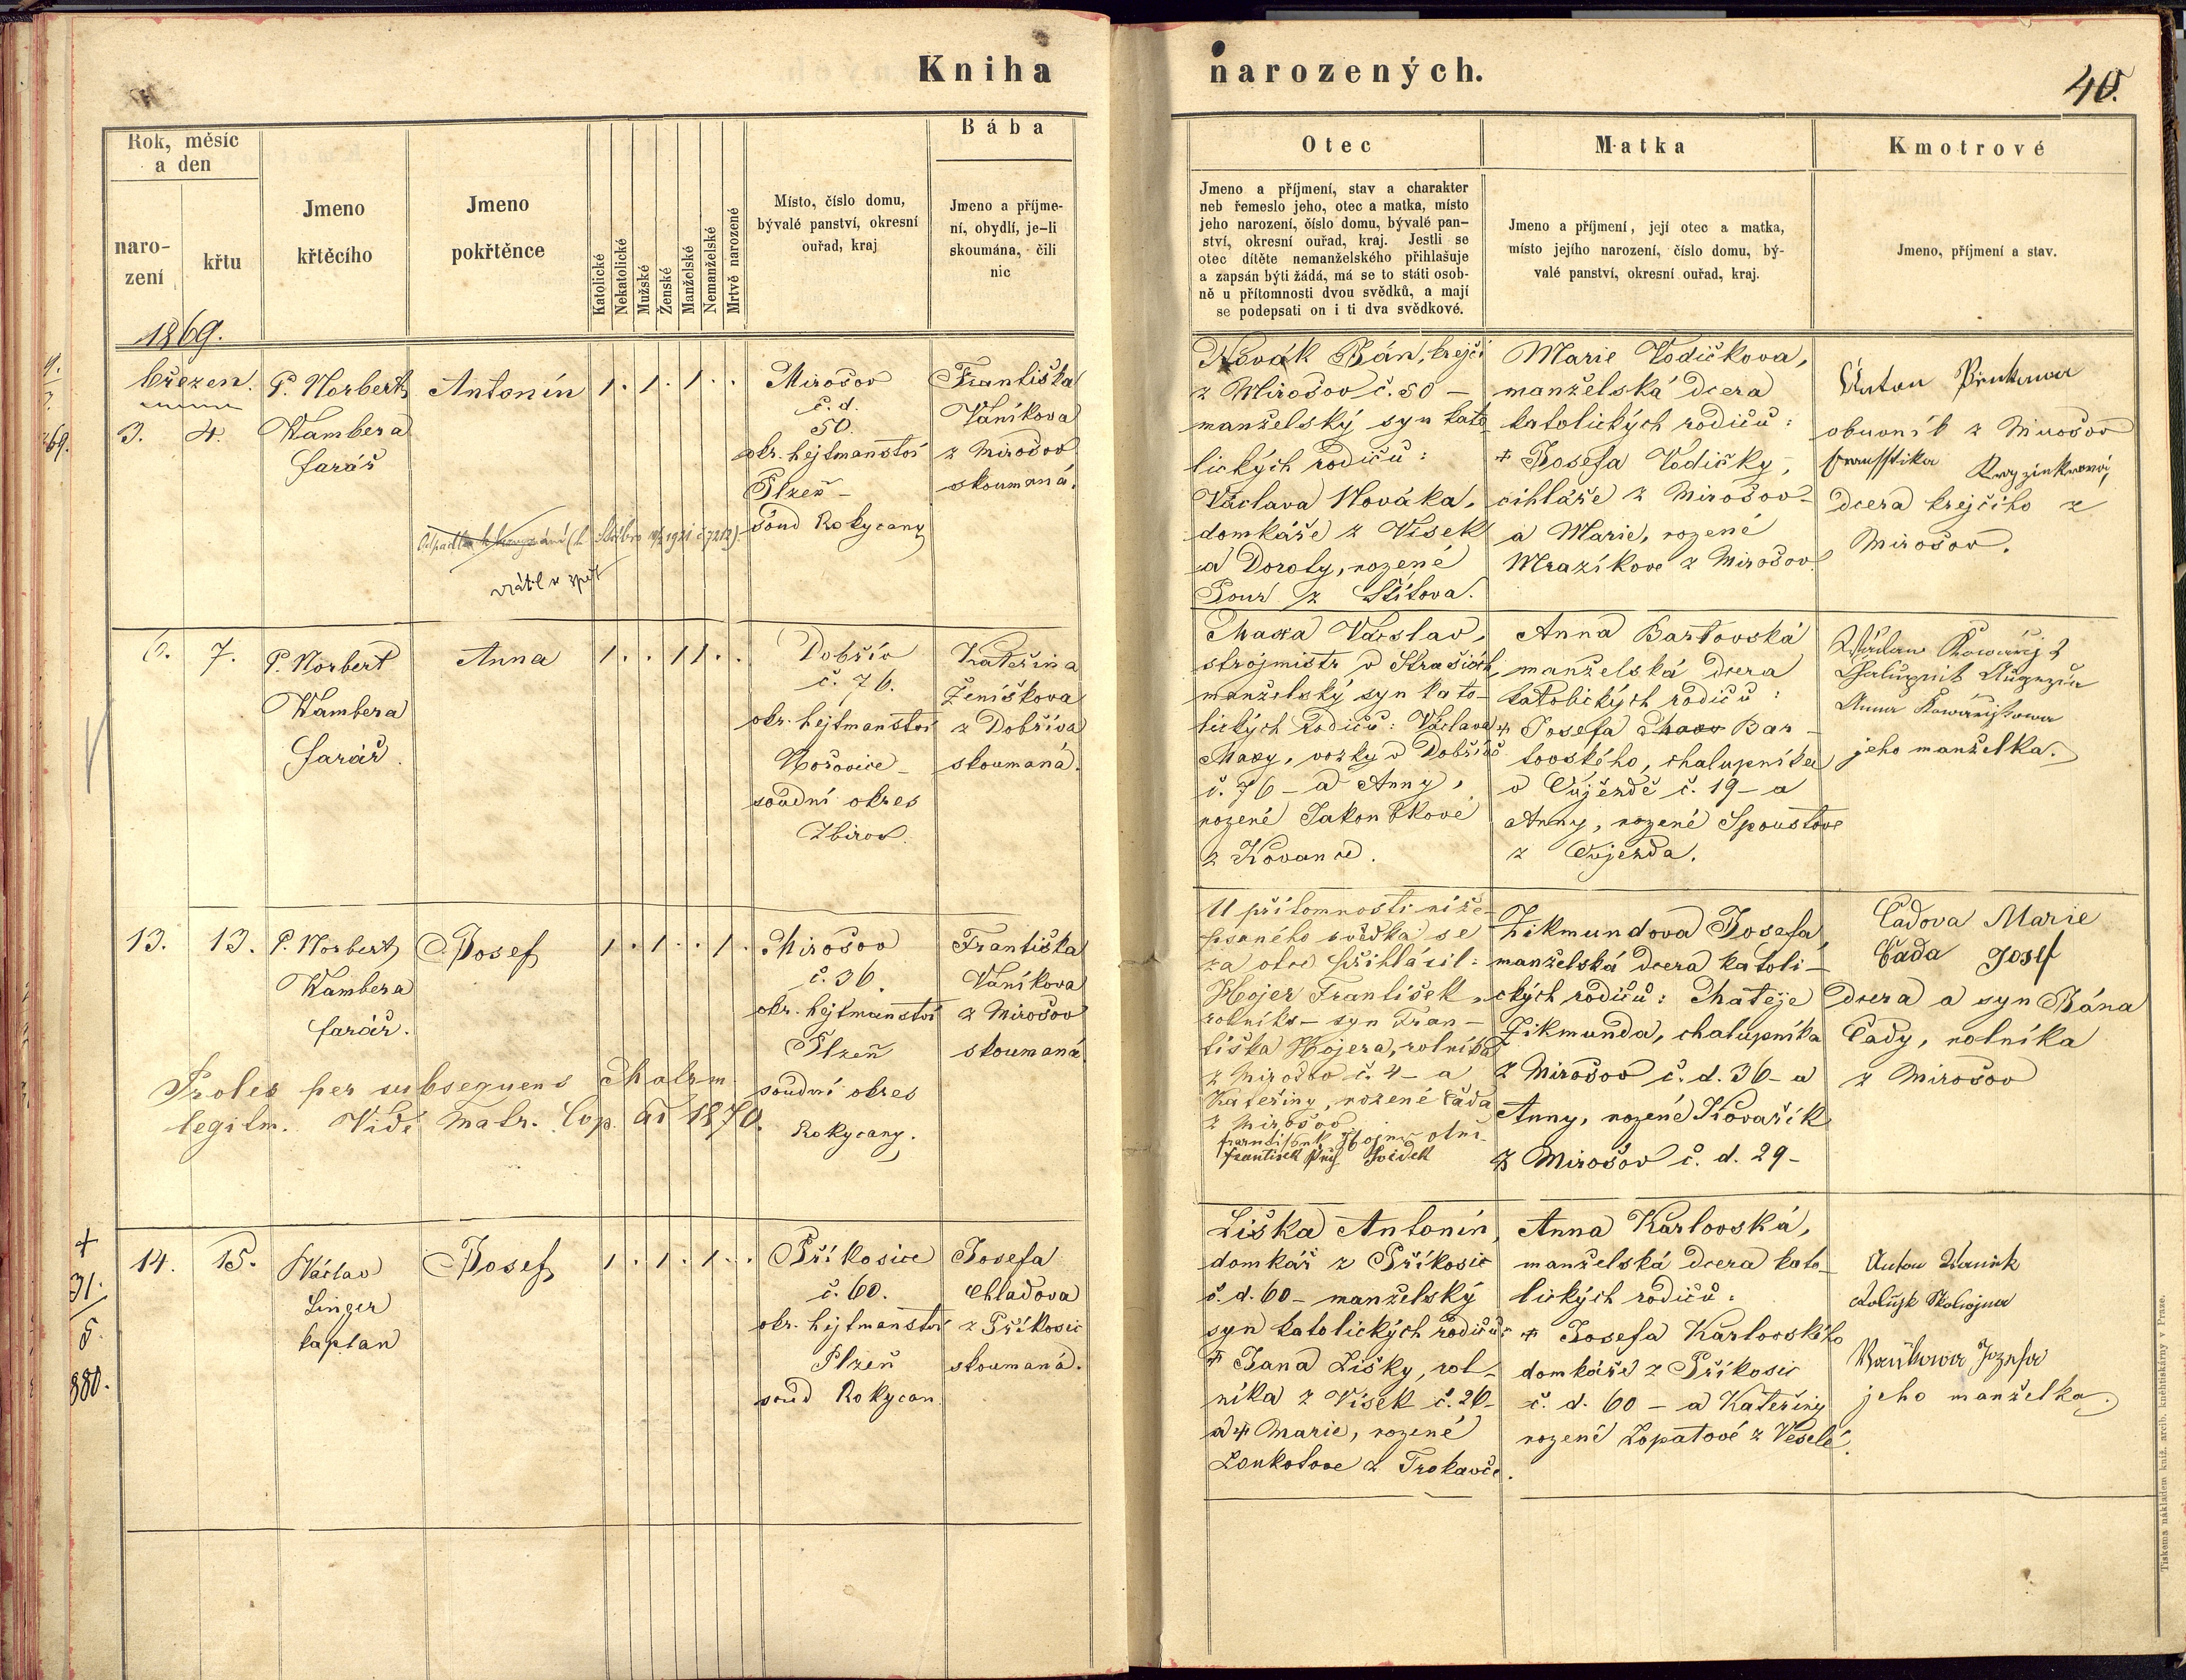 Kniha
narozených.
40.
Rok, měsíc
a den
naro-
zení
křtu
Jmeno
křtěcího
Jmeno
pokřtěnce
Katolické
Nekatolické
Mužské
Ženské
Manželské
Nemanželské
Mrtvě narozené
Místo, číslo domu,
bývalé panství, okresní
ouřad, kraj
Bába
Jmeno a příjme-
ní, obydlí, je-li
skoumána, čili
nic
Otec
Jmeno a příjmení, stav a charakter
neb řemeslo jeho, otec a matka, místo
jeho narození, číslo domu, bývalé pan-
ství, okresní ouřad, kraj. Jestli se
otec dítěte nemanželského přihlašuje
a zapsán býti žádá, má se to státi osob-
ně u přítomnosti dvou svědků, a mají
se podepsati on i ti dva svědkové.
Matka
Jmeno a příjmení, její otec a matka,
místo jejího narození, číslo domu, bý-
valé panství, okresní ouřad, kraj.
Kmotrové
Jmeno, příjmení a stav.
1869.
březen.
3. 4.
P. Norbert
Wambera
farář
Antonín
1 . 1 . 1 . .
Mirošov
č. d.
50.
okr. hejtmanství
Plzeň –
soud Rokycany
Františka
Vaníkova
z Mirošov
skoumaná.
vrátil se zpět
Novák Ján, krejčí
z Mirošov č. 50 –
manželský syn kato-
lických rodičů:
Václava Nováka,
domkáře z Vísek
a Doroty, rozené
Pour z Štítova.
Marie Vodičkova,
manželská dcera
katolických rodičů:
+ Josefa Vodičky,
cihláře z Mirošov –
a Marie, rozené
Mrazíkove z Mirošov.
obuvník z Mirošov
dcera krejčího z
Mirošov.
6. 7.
P. Norbert
Wambera
farář.
Anna
1 . . 1 1 . .
Dobřív
č. 76.
okr. hejtmanství
Hořovice –
soudní okres
Zbirov.
Kateřina
Ženíškova
z Dobříva
skoumaná.
Maxa Václav,
strojmistr v Strašicích,
manželský syn kato-
lických rodičů: Václava
Maxy, vozky v Dobřívě
č. 76 – a Anny,
rozené
z Kovanic.
Anna Bartovská
manželská dcera
katolických rodičů:
+ Josefa Bar-
tovského, chalupníka
v Oujezdě č. 19 – a
Anny, rozené Spoustove
z Oujezda.
jeho manželka.
13. 13.
P. Norbert
Wambera
farář.
Josef
1 . 1 . . 1 .
Mirošov
č. 36.
okr. hejtmanství
Plzeň
soudní okres
Rokycany.
Františka
Vaníkova
z Mirošov
skoumaná
Proles per subsequens Matrm.
legitm. Vidi Matr. Cop. ad 1870.
U přítomnosti níže
psaného svědka se
za otce přihlásil:
Hojer František,
rolník – syn Fran-
tiška Hojera, rolníka
z Mirošov č. 4 – a
Kateřiny, rozené Čada
z Mirošov.
Zikmundova Josefa,
manželská dcera katoli-
ckých rodičů: Matěje
Zikmunda, chalupníka
z Mirošov č. d. 36 – a
Anny, rozené Kovařík
z Mirošov č. d. 29 –
Čadova Marie
Čada Josef
dcera a syn Jána
Čady, rolníka
z Mirošov
+
31.
5.
880.
14. 15.
Václav
Linger
kaplan
Josef
1 . 1 . 1 . .
Příkosice
č. 60.
okr. hejtmanství
Plzeň
soud Rokycan.
Josefa
Chladova
z Příkosic
skoumaná.
Liška Antonín,
domkář z Příkosic
č. d. 60 – manželský
syn katolických rodičů:
+ Jana Lišky, rol-
níka z Vísek č. 26 –
a + Marie, rozené
Loukotove z Trokavče.
Anna Karlovská,
manželská dcera kato-
lických rodičů:
+ Josefa Karlovského
domkáře z Příkosic
č. d. 60 – a Kateřiny
rozené Lopatové z Veselé.
jeho manželka.
Tiskem a nákladem kníž. arcib. knihtiskárny v Praze.